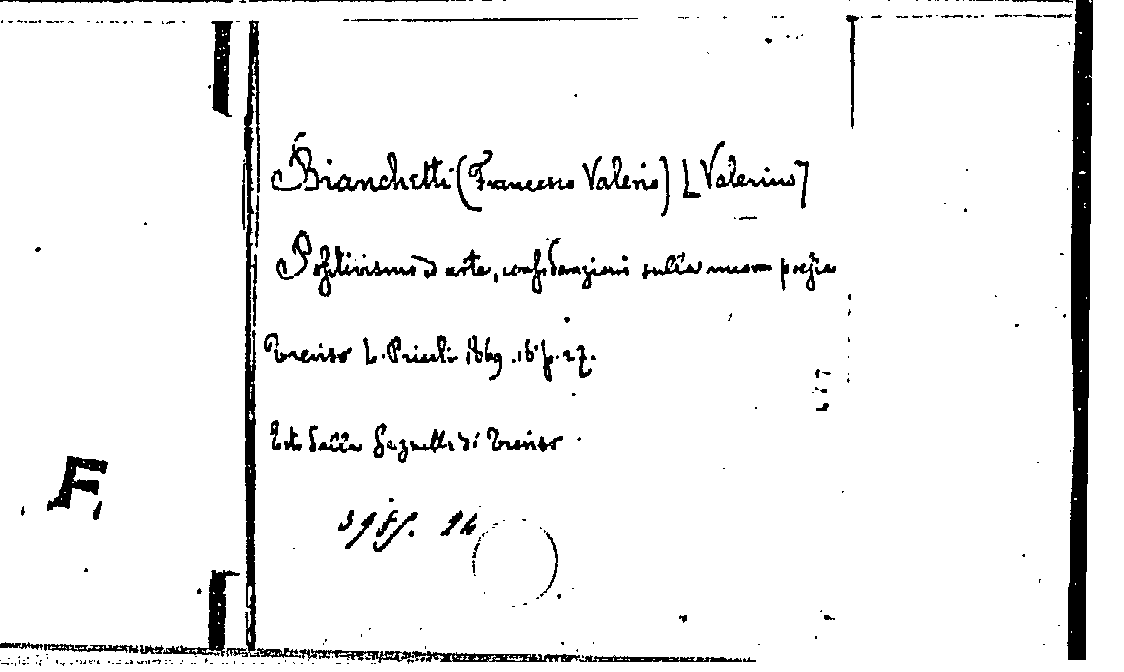 Bianchetti (Francesco Valerio) [Valerius]
Positivismo d'arte, confidenzioni sulla nuova poesia
Treviso L. Priuli 1869. 16° p. 27.
Estr. dalla Gazzetta di Treviso
F